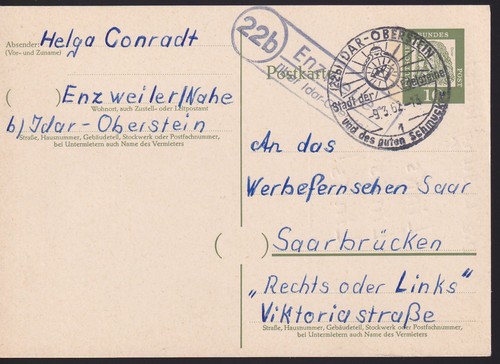 Absender: Helga Conradt
(Vor- und Zuname)
( ) Enzweiler/Nahe
Wohnort, auch Zustell- oder Leitpostamt
b/Idar-Oberstein
Straße, Hausnummer, Gebäudeteil, Stockwerk oder Postfachnummer,
bei Untermietern auch Name des Vermieters
22b
über Idar-
Postkarte
(22b) IDAR-OBERSTEIN
Stadt der Edelsteine
-9.3.62-
1
und des guten Schmuckes
POST
10
An das
Werbefernsehen Saar
( ) Saarbrücken
„Rechts oder Links"
Viktoriastraße
Straße, Hausnummer, Gebäudeteil, Stockwerk oder Postfachnummer,
bei Untermietern auch Name des Vermieters